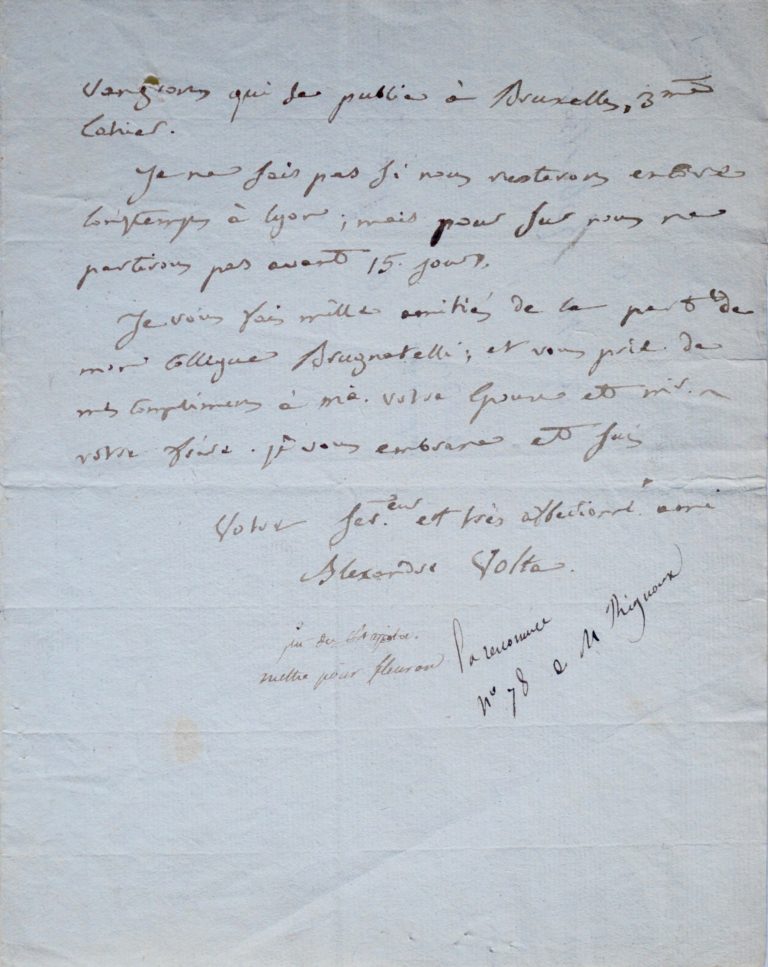 qui se publie à Bruxelles, 3me
Cahier.
Je ne sais pas si nous resterons encore
longtemps à Lyon; mais pour sur nous ne
partirons pas avant 15. jours.
Je vous fais mille amitiés de la part de
mon collegue Brugnatelli; et vous prie de
mes complimens à me. votre Epouse et mr.
votre frère. je vous embrasse et suis
Votre ser.eur et très affectionné ami
Alexandre Volta.
mettre pour fleuron la renommée
n° 78 de M